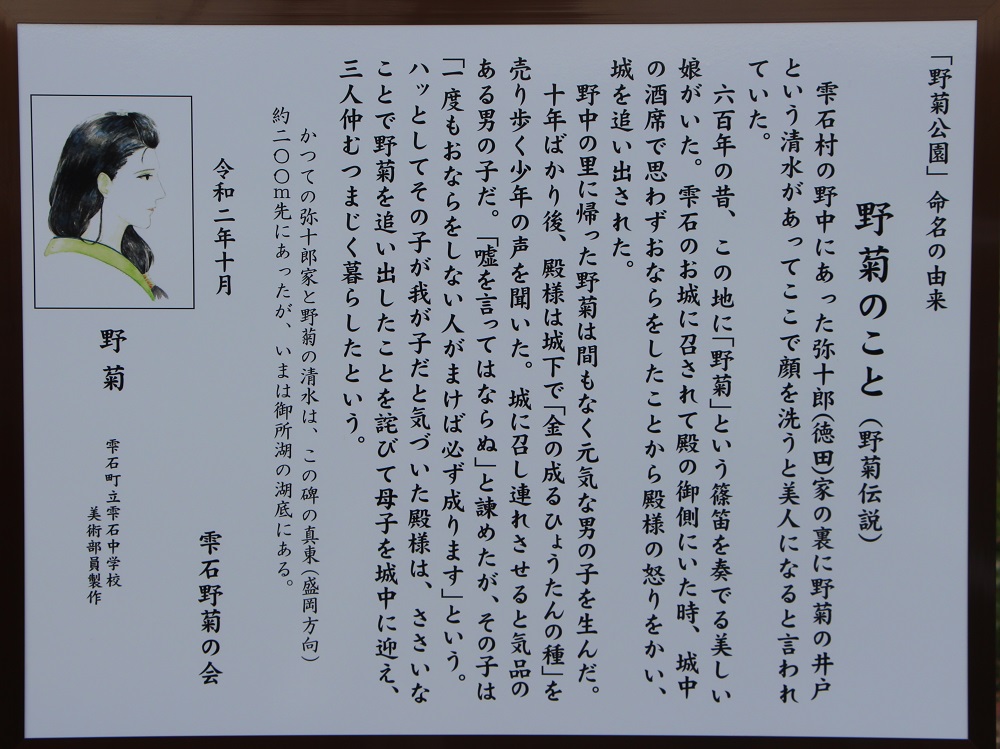 「野菊公園」命名の由来
野菊のこと（野菊伝説）
雫石村の野中にあった弥十郎（徳田）家の裏に野菊の井戸
という清水があってここで顔を洗うと美人になると言われ
ていた。
六百年の昔、この地に「野菊」という篠笛を奏でる美しい
娘がいた。雫石のお城に召されて殿の御側にいた時、城中
の酒席で思わずおならをしたことから殿様の怒りをかい、
城を追い出された。
野中の里に帰った野菊は間もなく元気な男の子を生んだ。
十年ばかり後、殿様は城下で「金の成るひょうたんの種」を
売り歩く少年の声を聞いた。城に召し連れさせると気品の
ある男の子だ。「嘘を言ってはならぬ」と諫めたが、その子は
「一度もおならをしない人がまけば必ず成ります」という。
ハッとしてその子が我が子だと気づいた殿様は、ささいな
ことで野菊を追い出したことを詫びて母子を城中に迎え、
三人仲むつまじく暮らしたという。
かつての弥十郎家と野菊の清水は、この碑の真東（盛岡方向）
約二〇〇ｍ先にあったが、いまは御所湖の湖底にある。
令和二年十月
雫石野菊の会
野菊
雫石町立雫石中学校
美術部員製作